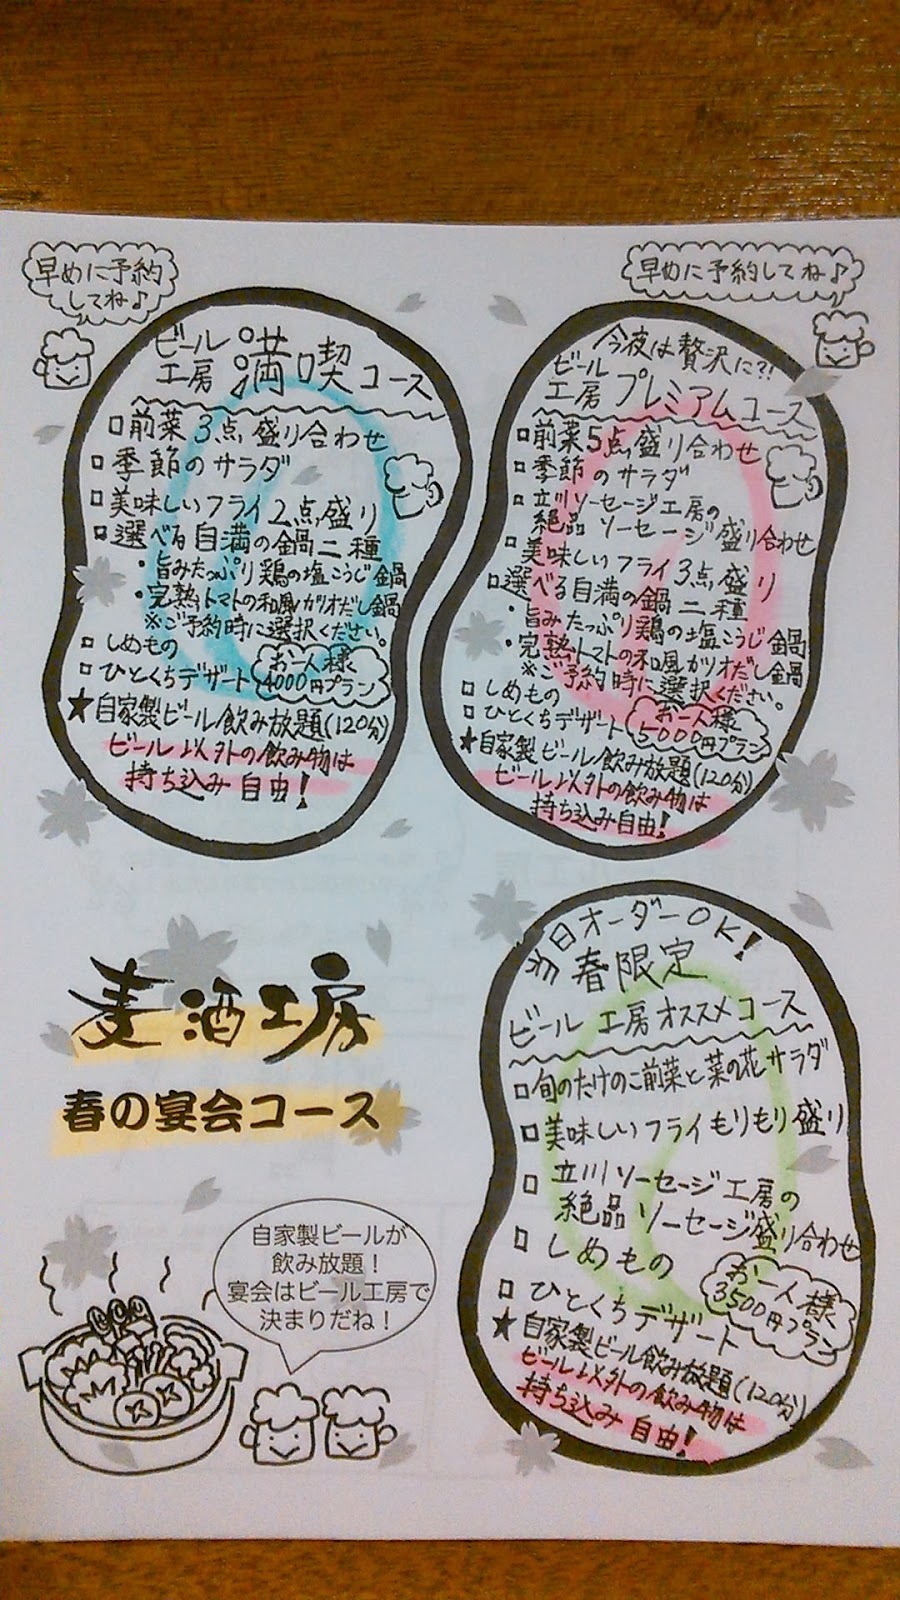 早めに予約
してね♪
ビール
工房 満喫コース
□前菜3点盛り合わせ
□季節のサラダ
□美味しいフライ2点盛り
□選べる自満の鍋二種
・旨みたっぷり鶏の塩こうじ鍋
・完熟トマトの和風カツオだし鍋
※ご予約時に選択ください。
□しめもの
□ひとくちデザート
お一人様
4000円プラン
★自家製ビール飲み放題(120分)
ビール以外の飲み物は
持ち込み自由!
早めに予約してね♪
今夜は贅沢に?!
ビール
工房 プレミアムコース
□前菜5点盛り合わせ
□季節のサラダ
□立川ソーセージ工房の
絶品ソーセージ盛り合わせ
□美味しいフライ3点盛り
□選べる自満の鍋二種
・旨みたっぷり鶏の塩こうじ鍋
・完熟トマトの和風カツオだし鍋
※ご予約時に選択ください。
□しめもの
□ひとくちデザート
お一人様
5000円プラン
★自家製ビール飲み放題(120分)
ビール以外の飲み物は
持ち込み自由!
麦酒工房
春の宴会コース
自家製ビールが
飲み放題!
宴会はビール工房で
決まりだね!
当日オーダーOK!
春限定
ビール工房オススメコース
□旬のたけのこ前菜と菜の花サラダ
□美味しいフライもりもり盛り
□立川ソーセージ工房の
絶品ソーセージ盛り合わせ
□しめもの
□ひとくちデザート
お一人様
3500円プラン
★自家製ビール飲み放題(120分)
ビール以外の飲み物は
持ち込み自由!